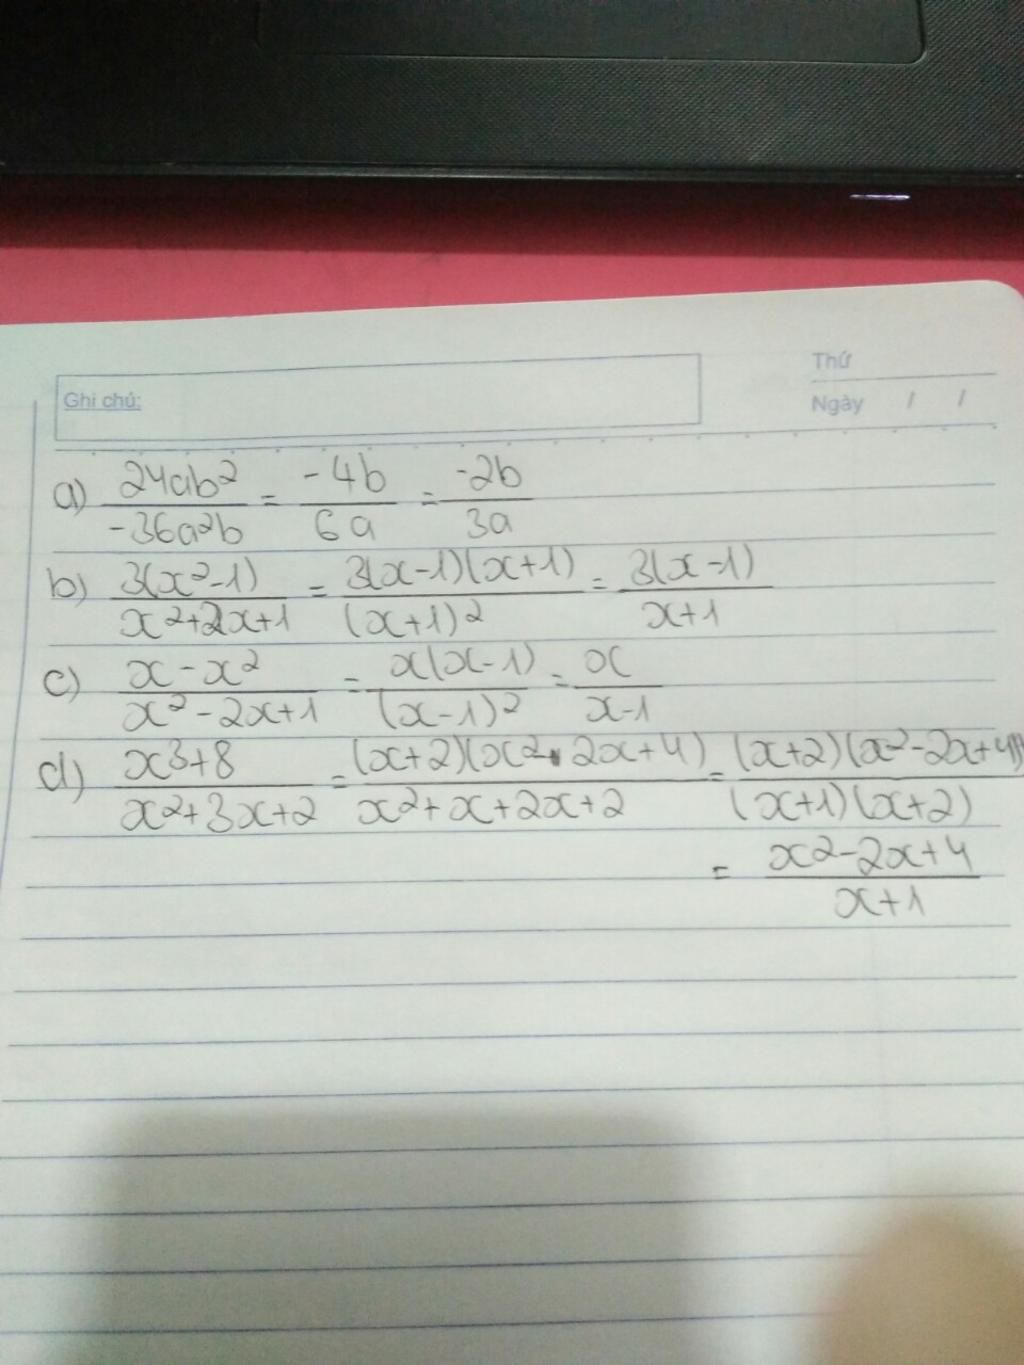 Thứ
Ghi chú:
Ngày / /
a) 24ab²/-36a²b = -4b/6a = -2b/3a
b) 3(x²-1)/x²+2x+1 = 3(x-1)(x+1)/(x+1)² = 3(x-1)/x+1
c) x-x²/x²-2x+1 = x(x-1)/(x-1)² = x/x-1
d) x³+8/x²+3x+2 = (x+2)(x²-2x+4)/x²+x+2x+2 = (x+2)(x²-2x+4)/(x+1)(x+2)
= x²-2x+4/x+1